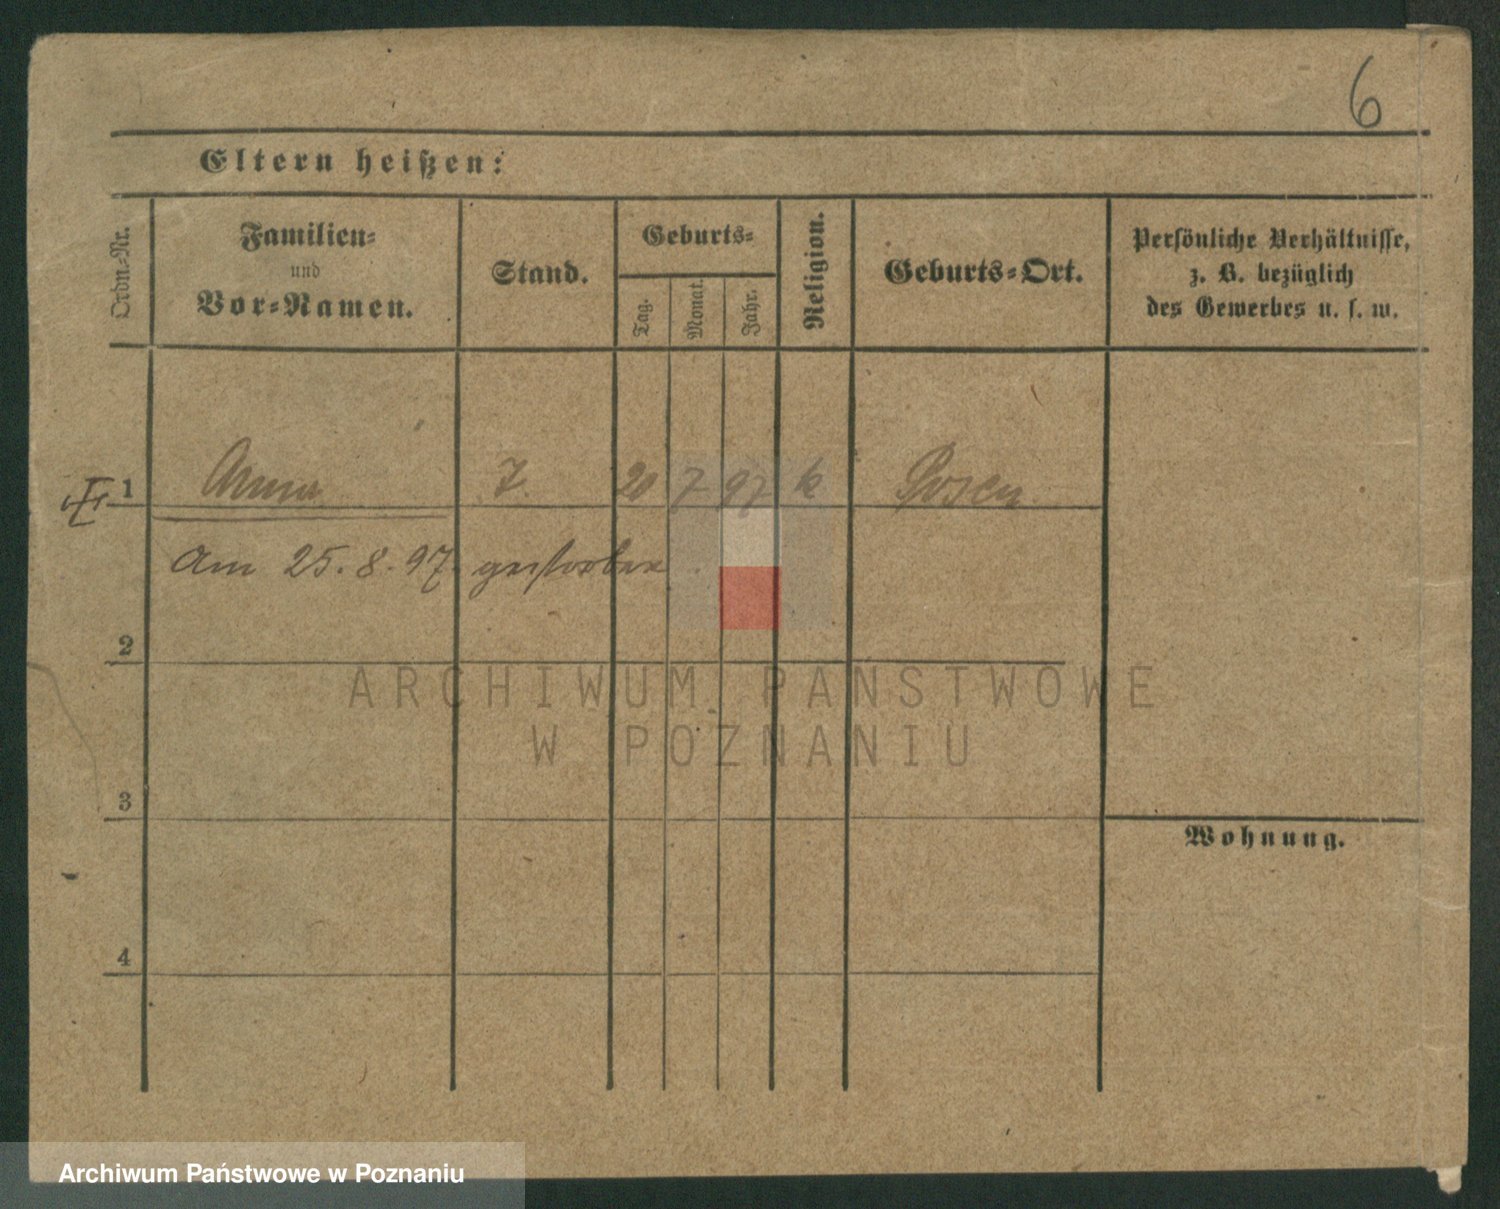 6
Eltern heißen:
Ordn.-Nr.
Familien-
und
Vor-Namen.
Stand.
Geburts-
Tag.
Monat.
Jahr.
Religion.
Geburts-Ort.
Persönliche Verhältnisse,
z. B. bezüglich
des Gewerbes u. s. w.
1 Anna T. 20 7 97 k Posen
Am 25. 8. 97. gestorben
2
ARCHIWUM PAŃSTWOWE
W POZNANIU
3
Wohnung.
4
Archiwum Państwowe w Poznaniu